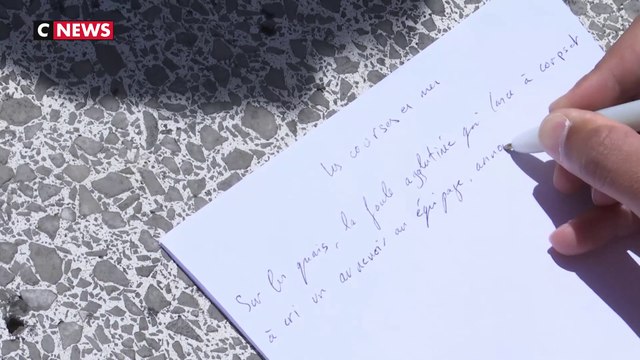 CNEWS
Les courses en mer
Sur les quais, la foule agglutinée qui lance à corps et
à cri un au revoir au équipage, anno